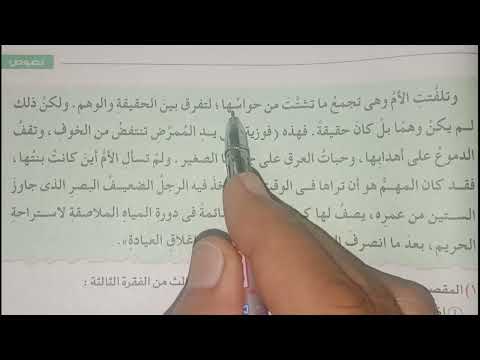 نصوص
وتلفَّتتِ الأمُّ وهى تجمعُ ما تشتَّتَ من حواسِّها؛ لتفرقَ بينَ الحقيقةِ والوهمِ. ولكنْ ذلك
لم يكنْ وهمًا بلْ كان حقيقةً. فهذه (فوزية) يدِ الممرِّضِ تنتفضُ من الخوفِ، وتقفُ
الدموعُ على أهدابِها، وحباتُ العرقِ على الصغيرِ. ولمْ تسألِ الأمُّ أينَ كانتْ بنتُها،
فقد كان المهمُّ هو أن تراها فى الوقتِ فيه الرجلُ الضعيفُ البصرِ الذى جاوزَ
الستينَ من عمرِه، يصفُ لها ك نائمةً فى دورةِ المياهِ الملاصقةِ لاستراحةِ
الحريمِ، بعدَ ما انصرفَ إغلاقِ العيادةِ».
١) المقص لث من الفقرة الثالثة :